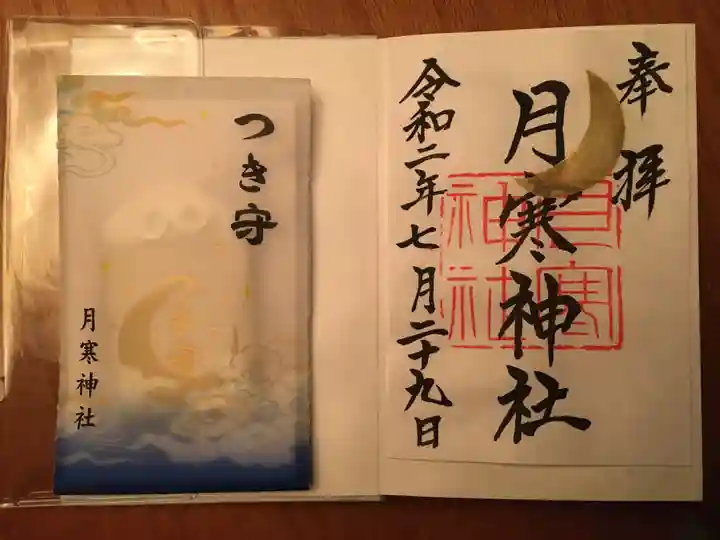 奉拝
月寒神社
令和二年七月二十九日
月寒
神社
つき守
月寒神社